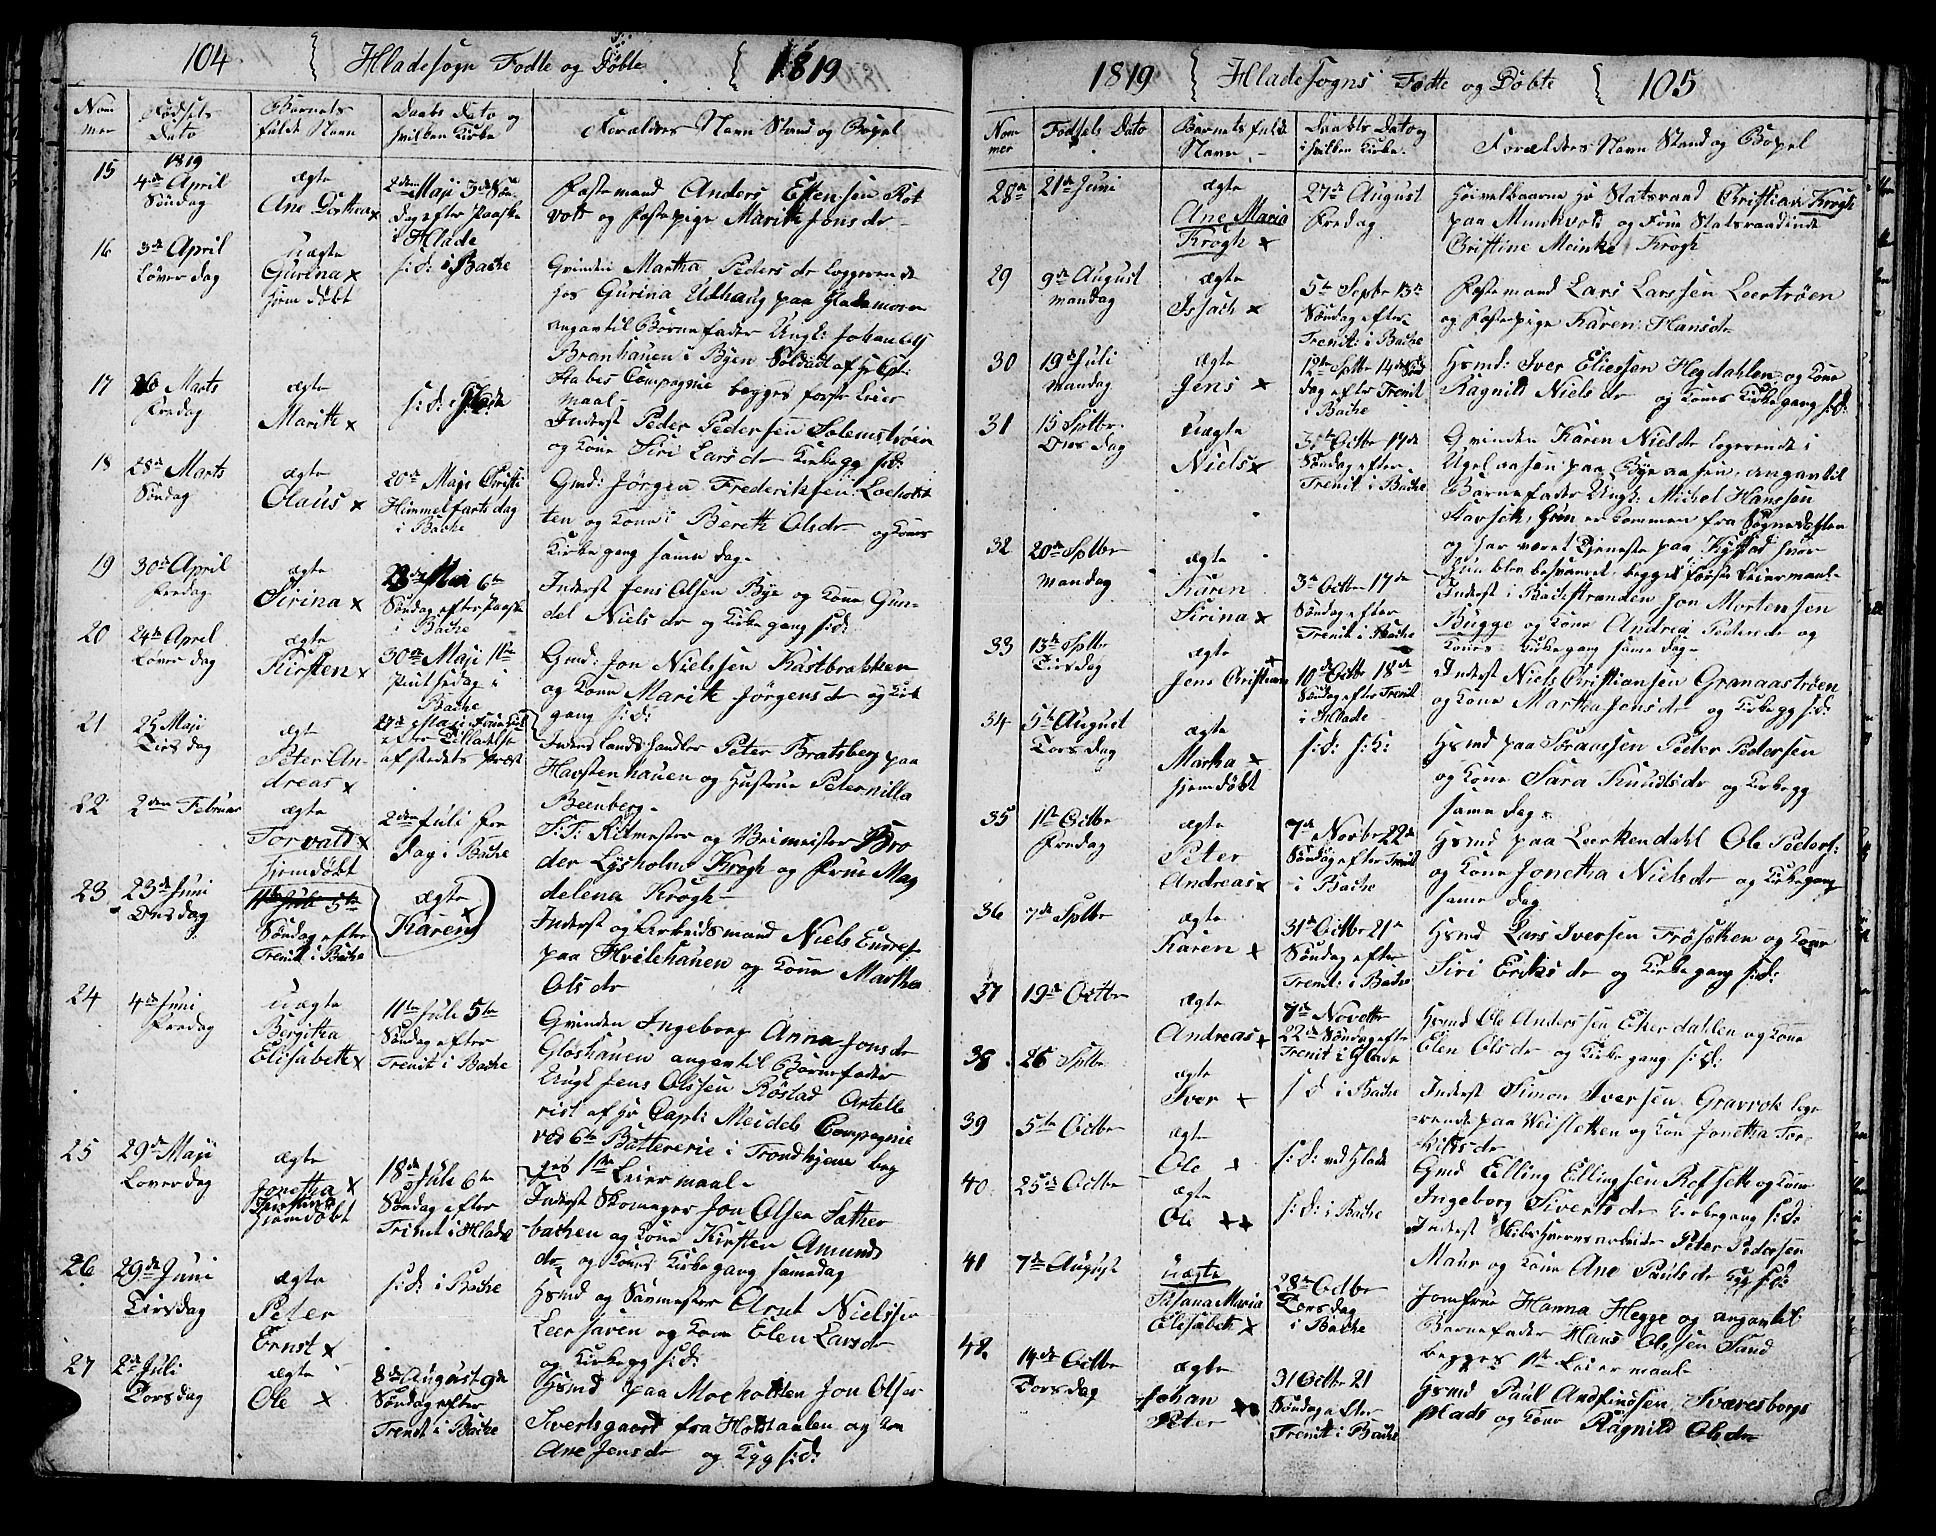 104 Hladesogn Fødte og Døbte 1819
Nom
mer
Fødsels
Dato
Barnets
fulde Navn
Daabs Dato og
hvilken Kirke
Forældres Navn Stand og Bopel
1819
15
4de April
Søndag
ægte
Ane Dorthea x
2den Maji 3de Søn
dag efter Paaske
i Hlade
Festemand Anders Estensen Rot
vold og Festepige Marith Jonsdr
16
3de April
Løverdag
uægte
Gurina x
hjemdøbt
s: d: i Bache
Qvinden Martha Peders dr loggerende
hos Gurina Udhaug paa Hlademoen
angav til Barnefader Ungk: Johan
Branhauen i Byen Soldat af Hr Capt:
Stabes Compagnie begges første Leier
maal-
17
26 Marts
Fredag
ægte
Marith x
s: d: i Hlade
Inderst Peder Pedersen Solemstrøen
og Kone Siri Lars dr Kirkegg s: d:
18
28de Marts
Søndag
ægte
Olaus x
20de Maji Christi
Himmelfarts dag
i Bache
Gmd: Jørgen Frederiksen Loeholt
ten og Kone Bereth Olsdr og Kones
Kirkegang samme dag-
19
30de April
Fredag
ægte
Sirina x
23de Mai 6te
Søndag efter Paaske
i Bache
Inderst Jens Olsen Bye og Kone Gun-
del Niels dr og Kirkegang s: d:
20
24de April
Løverdag
ægte
Kirsten x
30de Maji 1ste
Pintsedag i
Bache
Gmd: Jon Nielssen Kastbrekken
og Kone Marith Jørgens dr og Kirk
gang s: d:
21
25 Maji
Tirsdag
ægte
Peter An-
dreas x
27de Maji
efter Tilladelse
af Stedets Præst
Handler Peter Bratsberg paa
Havstenhauen og Hustrue Peternilla
Beenberg-
22
2den Februar
ægte
Torvald x
hjemdøbt
2den Juli fre
dag i Bache
S: T: Ritmester og Veimester Bro
der Lysholm Krogh og Frue Mag
delena Krogh-
23
23de Juni
Onsdag
ægte
Karen x
11te Juli 5te
Søndag efter
Trenit: i Bache
Inderst og Arbeidsmand Niels
paa Hvilehauen og Kone Martha
Olsdr
24
4de Juni
Fredag
uægte
Bergitha
Elisabeth x
11te Juli 5te
Søndag efter
Trenit i Bache
Qvinden Ingeborg Anna Jonsdr
Gløshauen angav til Barnefader
Ungk Jens Olssen Røstad Artelle
rist af Hr Capt: Meidels Compagnie
ved 6te Batterie i Trondhjem beg
ges 1ste Leiermaal-
25
29de Maji
Loverdag
ægte
Jonetha x
hjemdøbt
18de Juli 6te
Søndag efter
Trenit i Hlade
Inderst Skomager Jon Olsen Sather
bachen og Kone Kirsten Amunds
dr og Kones Kirkegang samedag
26
29de Juni
Tirsdag
ægte
Peter
Ernst x
s: d: i Bache
Hsmd og Savmester Arnt Nielssen
Leersaven og Kone Elen Larsdr
og Kirkegg s: d:
27
2de Juli
Torsdag
ægte
Ole x
8de August 9de
Søndag efter
Trenit i Bache
Hsmd paa Moeholten Jon Olsen
Sivertsgaard fra Holdtaalen og Kone
Ane Jensdr og Kgg s: d:
1819 Hladesogns Fødte og Døbte 105
Nom
mer
Fødsels Dato
Barnets fulde
Navn.-
Daabs Dato og
i hvilken Kirke.
Forældres Navn Stand og Bopel
28de
21de Juni
ægte
Ane Maria
Krogh x
27de August
Fredag
Høivelbaarne Hr Statsraad Christian Krogh
paa Munkvold og Frue Statsraadinde
Cristine Meinke Krogh
29
9de August
Mandag
ægte
Issach x
5te Septbr 13de
Søndag efter
Trenit: i Bache
Festemand Lars Larssen Leertrøen
og Festepige Karen Hansdr
30
19de Juli
Mandag
ægte
Jens x
12te Sptbr 14de Søn
dag efter Trenit
i Bache
Hsmd: Iver Eliessen Hegdahlen og Kone
Ragnild Niels dr og Kones Kirkegang s: d:
31
15 Sptbr
Onsdag
uægte
Niels x
3de Octbr 17de
Søndag efter
Trenit i Bache
Qvinden Karen Nielsdr logerende i
Ugelaasen paa Byeaasen. angav til
Barnefader Ungk: Michel Hanssen
Stavseth, hun er kommen fra Sognedahlen
og har været tjeneste paa Kystad hvor
hun blev besvangret, begges første Leiermaal-
32
20de Sptbr
Mandag
ægte
Karen
Sirina x
3de Octbr 17de
Søndag efter
Trenit i Bache
Inderst i Backstranden Jon Mortensen
Bugge og Kone Andrea Peders dr og
Kones Kirkegang samme dag-
33
13de Sptbr
Tirsdag
ægte
Jens Christian x
10de Octbr 18de
Søndag efter Trenit
i Hlade
Inderst Niels Christiansen Granaastrøen
og Kone Martha Jonsdr og Kirkegg s: d:
34
5te August
Torsdag
ægte
Martha x
hjemdøbt
s: d: s: K:
Hsmd paa Soraassen Peder Pedersen
og Kone Sara Knudtsdr og Kirkegg
samme dag.
35
1ste Octbr
Fredag
ægte
Peter
Andreas x
7de Novbr 22de
Søndag efter Trenit
i Bache
Hsmd paa Leerkendahl Ole Peders:
og Kone Jonetha Nielsdr og Kirkegang
samme dag
36
7de Sptbr
ægte
Karen x
31de Octbr 21de
Søndag efter
Trenit: i Bache
Hsmd Lars Iversen Trøseken og Kone
Siri Eriks dr og Kirkegang s: d:
37
19de Octbr
ægte
Andreas x
7de Novbr
22de Søndag efter
Trenit i Hlade
Hsmd Ole Anderssen Ekerdahlen og Kone
Elen Olsdr og Kirkegang s: d:
38
26 Sptbr
ægte
Iver x
s: d: i Bache
Inderst Simon Iversen Gravrok loge
rende paa Veisletten og Kone Jonetha Tor-
kilds dr
39
5te Octbr
ægte
Ole x
s: d: ved Hlade
Gmd Elling Ellingsen Refseth og Kone
Ingeborg Siverts dr Kirkegang s: d:
40
25de Octbr
ægte
Ole xx
s: d: i Bache
Inderst Skibsværvsarbeider Peter Pedersen
Maur og Kone Ane Pauls dr Kgg s: d:
41
7de August
uægte
Susana Maria
Elisabeth x
28de Octbr
Torsdag
i Bache
Jomfrue Hanna Hegge og angav til
Barnefader Hans Olssen Sand
begges 1ste Leiermaal-
42
14de Octbr
Torsdag
ægte
Johan
Peter xx
31 Octbr 21
Søndag efter
Trenit i Bache
Hsmd Paul Andfindsen Sværesborgs
plads og Kone Ragnild Olsdr